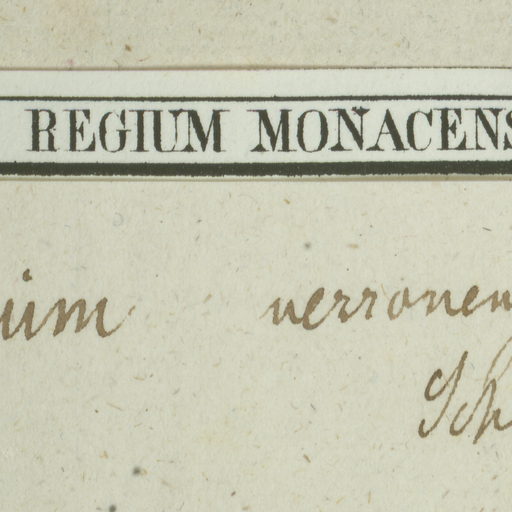 REGIUM MONACENS
ium verronen
Sch